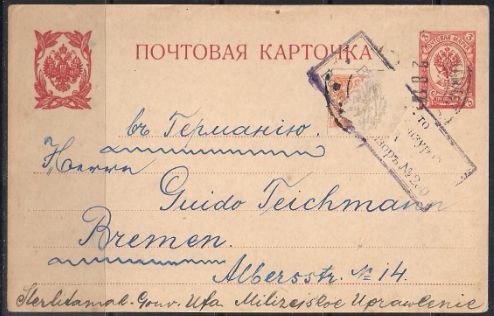 ПОЧТОВАЯ КАРТОЧКА
въ Германію.
Herrn
Guido Teichmann
Bremen.
Albersstr. № 14.
Sterlitamak. Gouv. Ufa Milizejskoe Uprawlenie